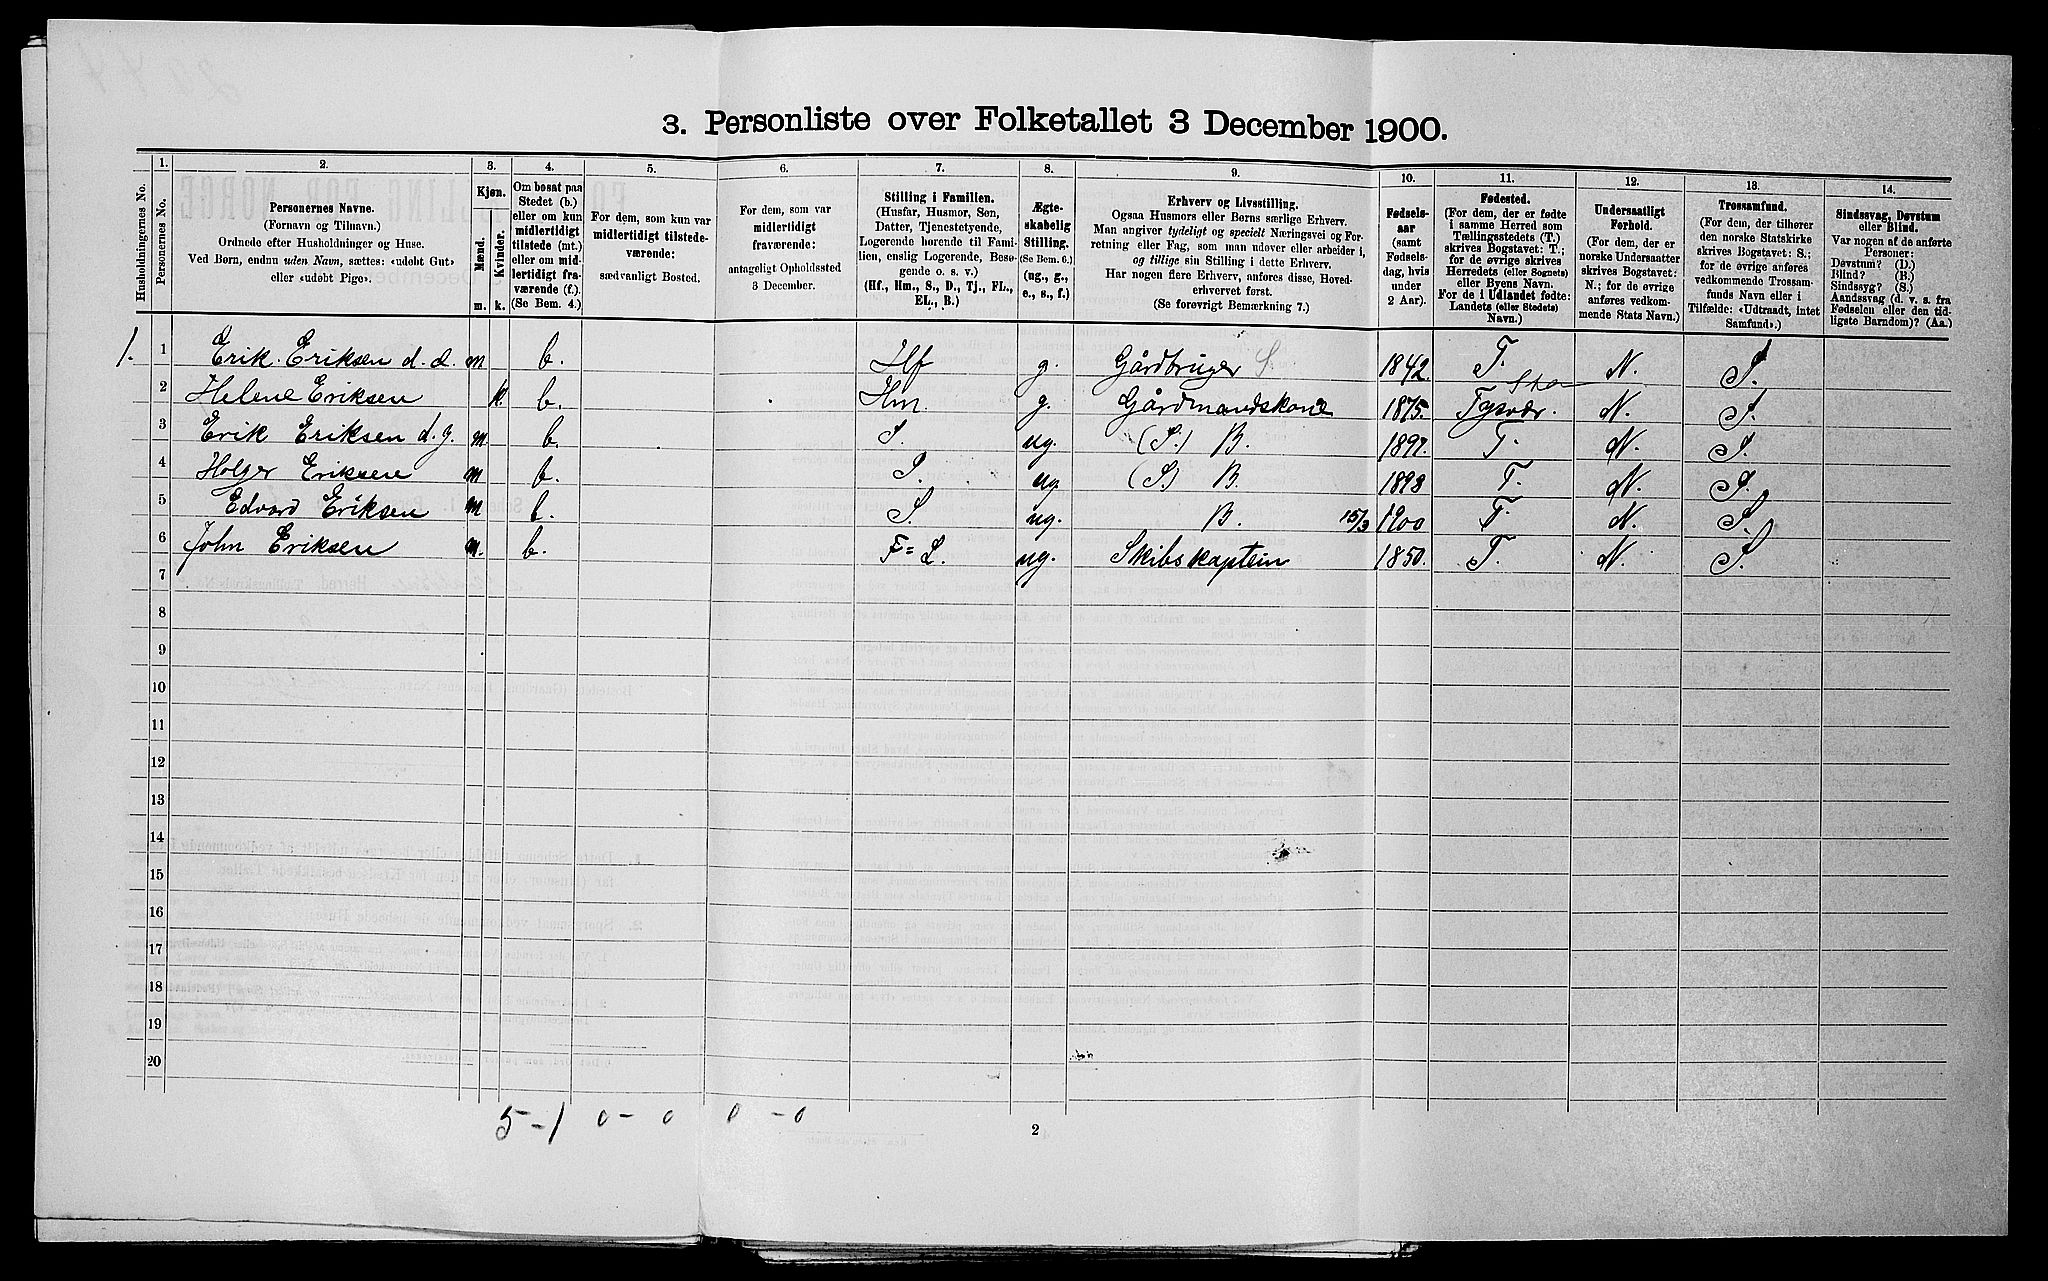 3. Personliste over Folketallet 3 December 1900.
1. 2. 3. 4. 5. 6. 7. 8. 9. 10. 11. 12. 13. 14.
Husholdningernes No.
Personernes No.
Personernes Navne.
(Fornavn og Tilnavn.)
Ordnede efter Husholdninger og Huse.
Ved Børn, endnu uden Navn, sættes: «udøbt Gut»
eller «udøbt Pige».
Kjøn.
Mænd.
Kvinder.
m. k.
Om bosat paa
Stedet (b.)
eller om kun
midlertidigt
tilstede (mt.)
eller om mid-
lertidigt fra-
værende (f.)
(Se Bem. 4.)
For dem, som kun var
midlertidigt tilstede-
værende:
sædvanligt Bosted.
For dem, som var
midlertidigt
fraværende:
antageligt Opholdssted
3 December.
Stilling i Familien.
(Husfar, Husmor, Søn,
Datter, Tjenestetyende,
Logerende hørende til Fami-
lien, enslig Logerende, Besø-
gende o. s. v.)
(Hf., Hm., S., D., Tj., FL.,
EL., B.)
Ægte-
skabelig
Stilling.
(Se Bem. 6.)
(ug., g.,
e., s., f.)
Erhverv og Livsstilling.
Ogsaa Husmors eller Børns særlige Erhverv.
Man angiver tydeligt og specielt Næringsvei og For-
retning eller Fag, som man udøver eller arbeider i,
og tillige sin Stilling i dette Erhverv.
Har nogen flere Erhverv, anføres disse, Hoved-
erhvervet først.
(Se forøvrigt Bemærkning 7.)
Fødsels-
aar
(samt
Fødsels-
dag, hvis
under
2 Aar).
Fødested.
(For dem, der er fødte
i samme Herred som
Tællingsstedets (T.)
skrives Bogstavet: T.;
for de øvrige skrives
Herredets (eller Sognets)
eller Byens Navn.
For de i Udlandet fødte:
Landets (eller Stedets)
Navn.)
Undersaatligt
Forhold.
(For dem, der er
norske Undersaatter
skrives Bogstavet:
N.; for de øvrige
anføres vedkom-
mende Stats Navn.)
Trossamfund.
(For dem, der tilhører
den norske Statskirke
skrives Bogstavet: S.;
for de øvrige anføres
vedkommende Trossam-
funds Navn eller i
Tilfælde: «Udtraadt, intet
Samfund».)
Sindssvag, Døvstum
eller Blind.
Var nogen af de anførte
Personer:
Døvstum? (D.)
Blind? (B.)
Sindssyg? (S.)
Aandssvag (d. v. s. fra
Fødselen eller den tid-
ligste Barndom)? (Aa.)
1. 1 Erik Eriksen d. æ. m b. Hf g. Gårdbruger S. 1842. T. N. S.
2 Helene Eriksen k. b. Hm. g. Gårdmandskone 1875. Tysvær. N. S.
3 Erik Eriksen d. y. m b. S. ug. (S.) B. 1897. T. N. S.
4 Holger Eriksen m b. S. ug. (S) B. 1898 T. N. S.
5 Edvard Eriksen m b. S. ug. B. 15/3 1900 T. N. S.
6 John Eriksen m. b. F=L. ug. Skibskaptein 1850. T. N. S.
7
8
9
10
11
12
13
14
15
16
17
18
19
20
5-1 0-0 0-0
2